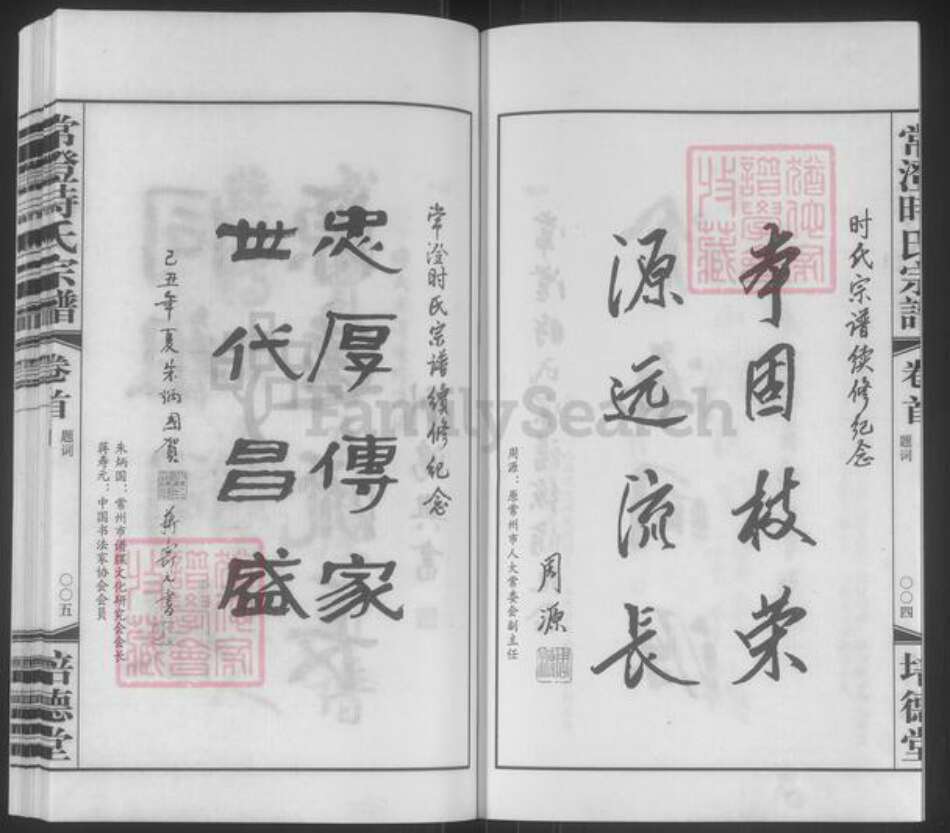 常澄时氏宗谱
卷首
题词
〇〇四
培德堂
时氏宗谱续修纪念
本固枝荣
源远流长
周源
周源：原常州市人大常委会副主任
常澄时氏宗谱续修纪念
忠厚傳家
世代昌盛
己丑年夏朱炳国賀
蒋寿元書
朱炳国：常州市谱牒文化研究会会长
蒋寿元：中国书法家协会会员
常澄時氏宗譜
卷首
题词
〇〇五
培德堂
FamilySearch